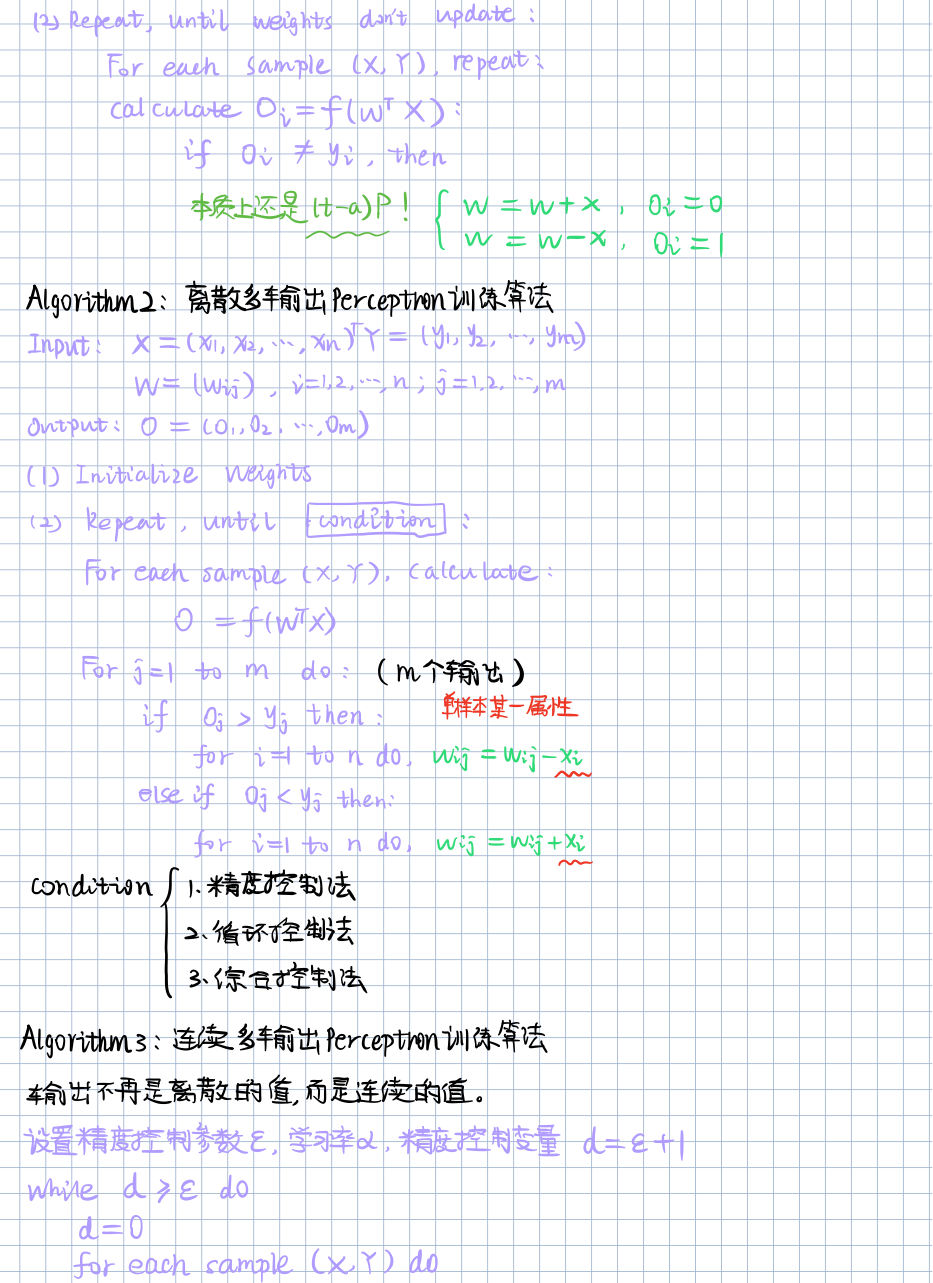 (2) Repeat, until weights don't update :
For each sample (X, Y), repeat:
calculate Oi = f(wᵀX) :
if Oi ≠ yi, then
本质上还是 (t-a)P ! { w = w+x , Oi = 0
w = w-x , Oi = 1
Algorithm2: 离散多输出Perceptron训练算法
Input: X = (x1, x2, ..., xn)ᵀ Y = (y1, y2, ..., ym)
W = (wij) , i=1,2,...,n ; j=1,2,...,m
Output: O = (O1, O2, ..., Om)
(1) Initialize weights
(2) Repeat, until condition :
For each sample (X, Y), calculate :
O = f(WᵀX)
For j=1 to m do : (m个输出)
单样本某一属性
if Oj > yj then :
for i=1 to n do, wij = wij - xi
else if Oj < yj then:
for i=1 to n do, wij = wij + xi
condition { 1. 精度控制法
2、循环控制法
3、综合控制法
Algorithm3: 连续多输出Perceptron训练算法
输出不再是离散的值,而是连续的值。
设置精度控制参数ε, 学习率α, 精度控制变量 d=ε+1
while d ≥ ε do
d=0
for each sample (X, Y) do